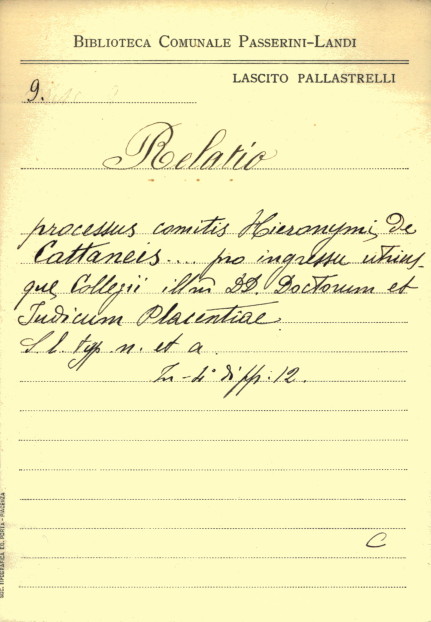 BIBLIOTECA COMUNALE PASSERINI-LANDI
LASCITO PALLASTRELLI
9.
Relatio
processus comitis Hieronymi de
Cattaneis.... pro ingressu utrius-
que Collegii illm DD. Doctorum et
Judicum Placentiae
S. l. typ. n. et a.
In-4° di pp. 12.
C